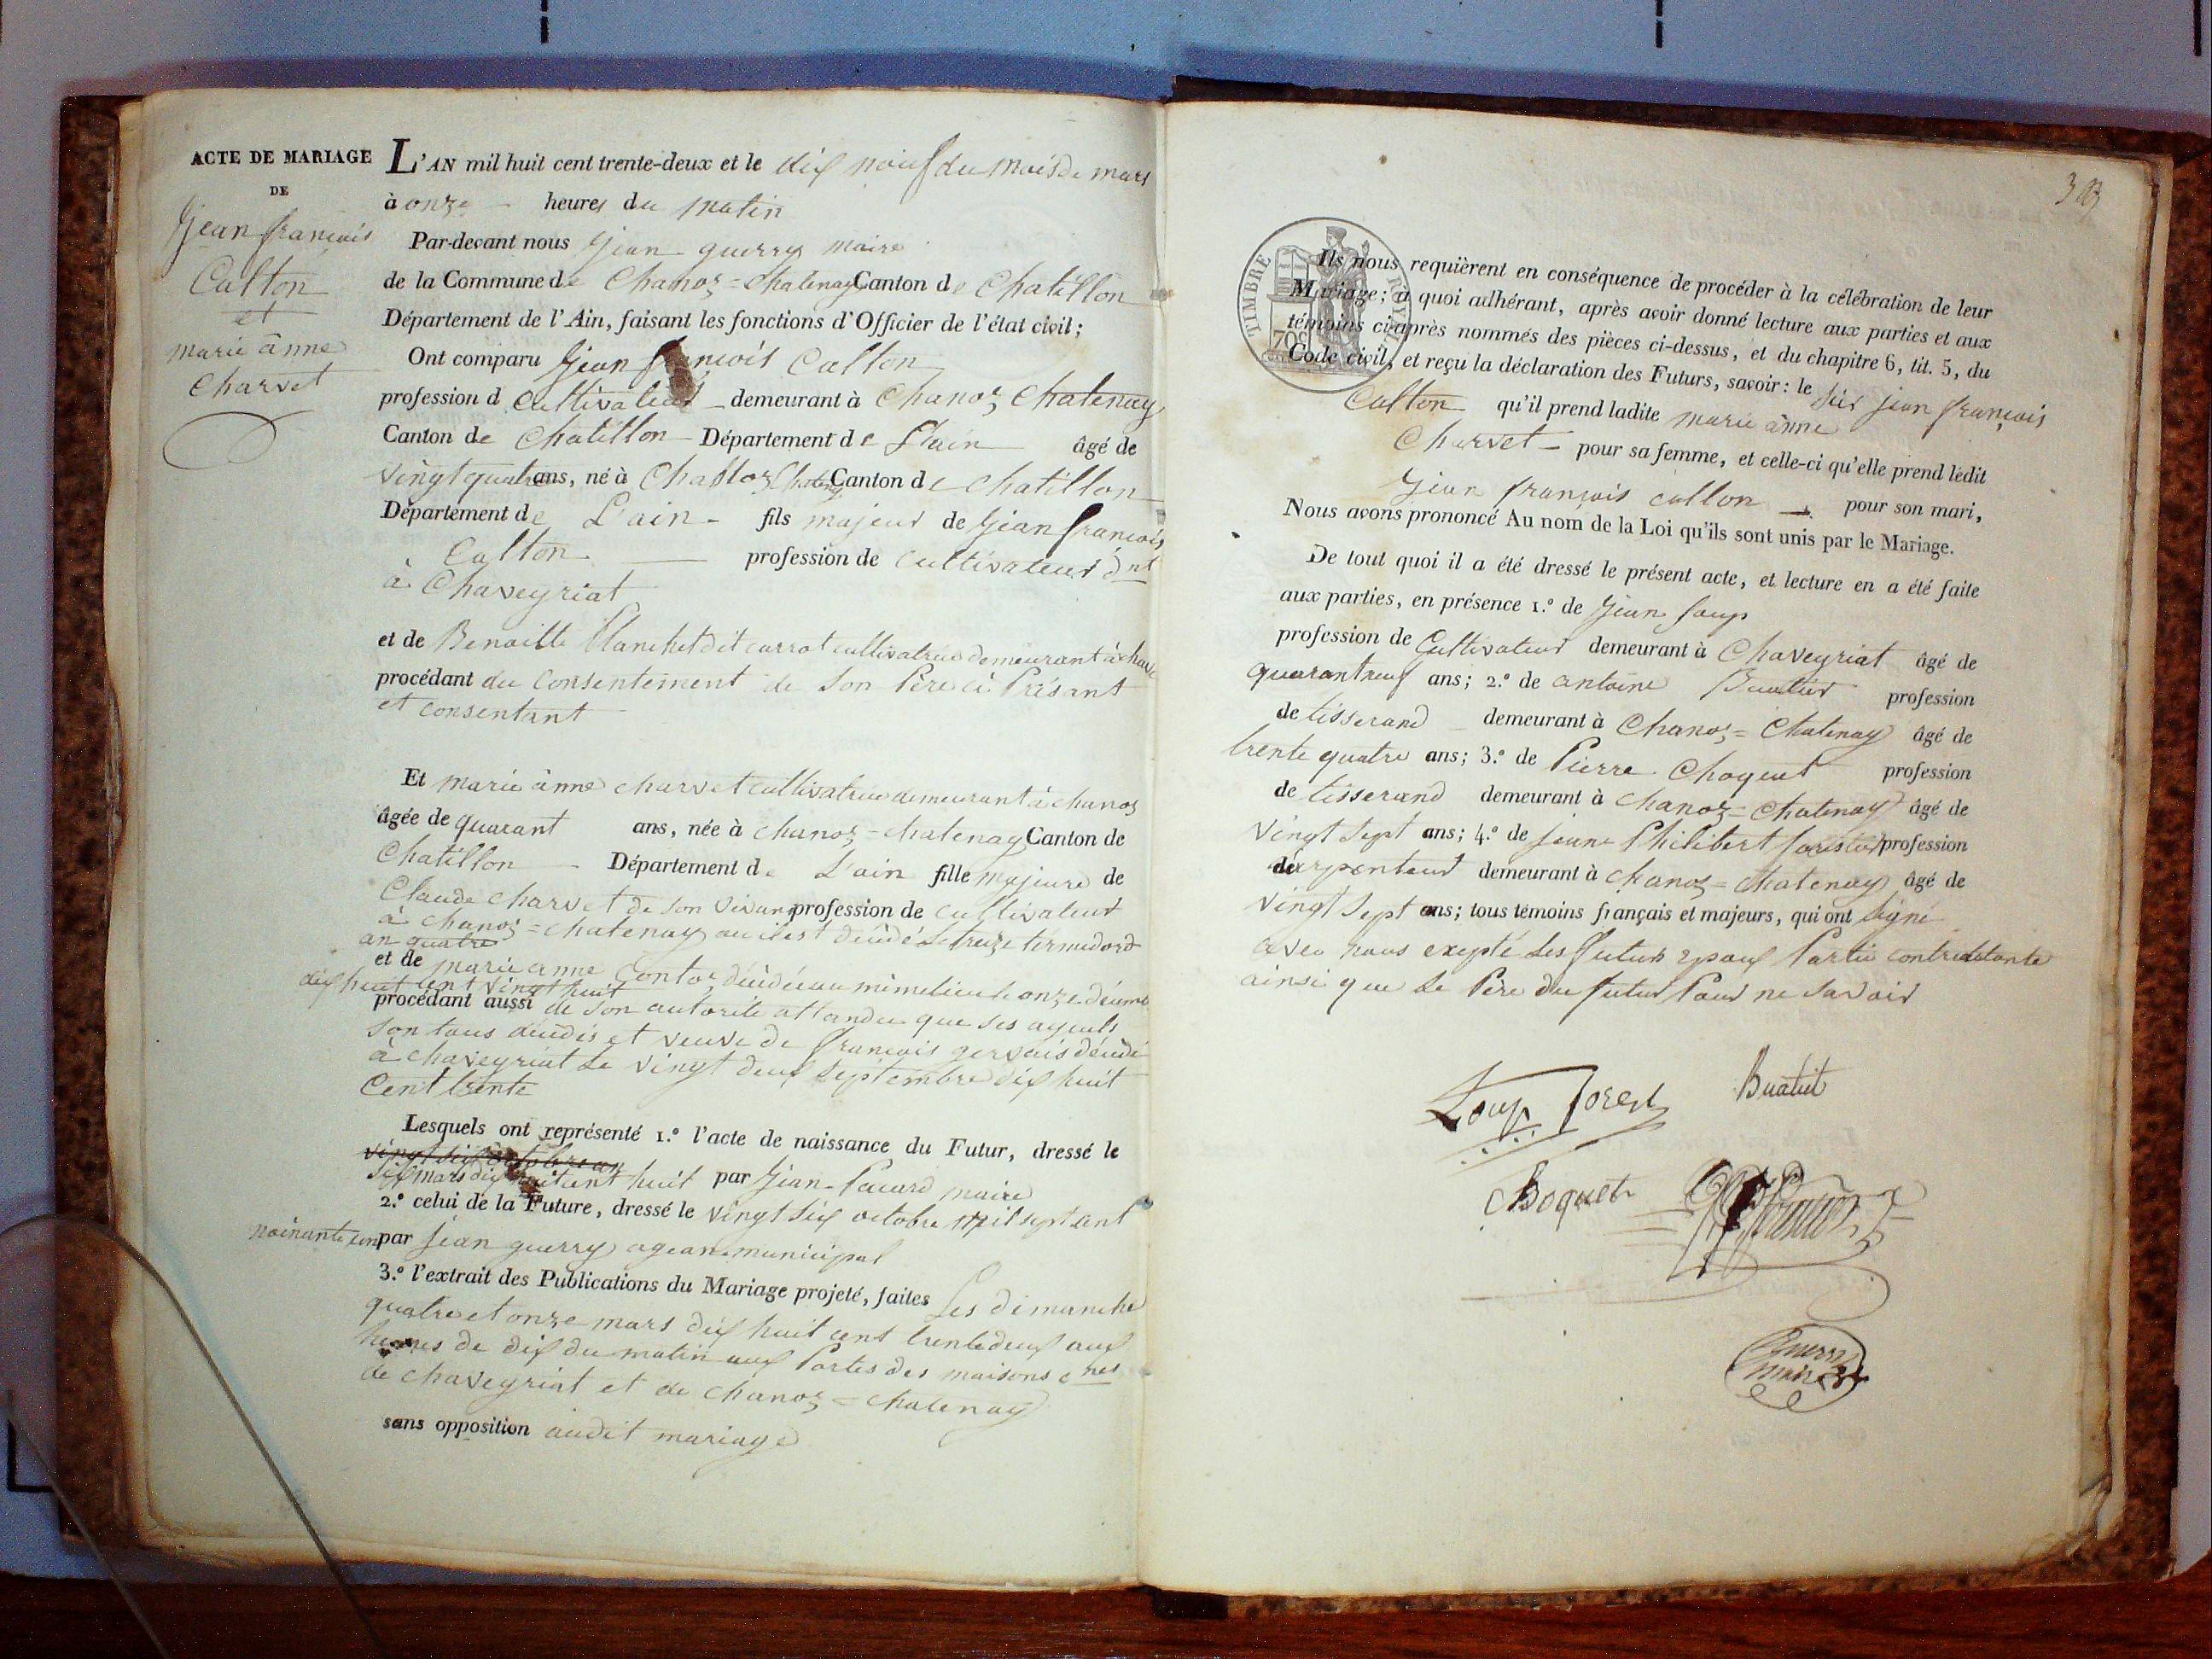 ACTE DE MARIAGE
DE
Jean françois
Catton
et
marie ànne
Charvet
L'AN mil huit cent trente-deux et le dix nouf du mois de mars
à onze heures du matin
Par-devant nous Jean guerry maire
de la Commune de Chanoz = Chatenay Canton de Chatillon
Département de l'Ain, faisant les fonctions d'Officier de l'état civil;
Ont comparu Jean françois Catton
profession d Cultivateur demeurant à Chanoz Chatenay
Canton de Chatillon Département de L'ain âgé de
vingt quatre ans, né à Chanoz Chatenay Canton de Chatillon
Département de L'ain fils majeur de Jean françois
Catton profession de Cultivateur dnt
à Chaveyriat
et de Benoitte Planchet dit carrot cultivatrice demeurant à chave
procédant du Consentement de Son Père ci Présant
et consentant
Et marie ànne charvet cultivatrice demeurant à chanoz
âgée de quarant ans, née à chanoz = chatenay Canton de
Chatillon Département de L'ain fille majeure de
Claude charvet de son vivant profession de Cultivateur
à chanoz = chatenay ou il est décédé Le treize termidord
an quatre
et de marie anne Contoz décédée au mimelieu le onze décmb
dix huit cent vingt huit
procédant aussi de Son autorité attandu que ses ayeuls
Son tous décédés et veuve de françois gervais décédé
à chaveyriat Le vingt deux septembre dix huit
Cent trente
Lesquels ont représenté 1.º l'acte de naissance du Futur, dressé le
vingt six octobre an
Six mars dix huit cent huit par Jean Pacard maire
2.º celui de la Future, dressé le vingt six octobre mil sept cent
noinante un par Jean guerry agean municipal
3.º l'extrait des Publications du Mariage projeté, faites Les dimanche
quatre et onze mars dix huit cent trente deux aux
heures de dix du matin aux Portes des maisons cnes
de Chaveyriat et de Chanoz = Chatenay
sans opposition audit mariage
TIMBRE ROYAL
70c
Ils nous requièrent en conséquence de procéder à la célébration de leur
Mariage; à quoi adhérant, après avoir donné lecture aux parties et aux
témoins ci-après nommés des pièces ci-dessus, et du chapitre 6, tit. 5, du
Code civil, et reçu la déclaration des Futurs, savoir: le Sir Jean françois
Catton qu'il prend ladite marie ànne
Charvet pour sa femme, et celle-ci qu'elle prend ledit
Jean françois catton pour son mari,
Nous avons prononcé Au nom de la Loi qu'ils sont unis par le Mariage.
De tout quoi il a été dressé le présent acte, et lecture en a été faite
aux parties, en présence 1.º de Jean Loup
profession de Cultivateur demeurant à Chaveyriat âgé de
quarantneuf ans; 2.º de antoine Buatier profession
de tisserand demeurant à Chanoz = Chatenay âgé de
trente quatre ans; 3.º de Pierre Choquet profession
de tisserand demeurant à Chanoz = Chatenay âgé de
vingt Sept ans; 4.º de Philibert profession
darpenteur demeurant à chanoz = Chatenay âgé de
vingt Sept ans; tous témoins français et majeurs, qui ont Signé
avec nous exepté Les futurs epoux Partie contractante
ainsi que Le Père du futur Pour ne Savoir
Loup Buatiét
Choquet
Guerry
maire